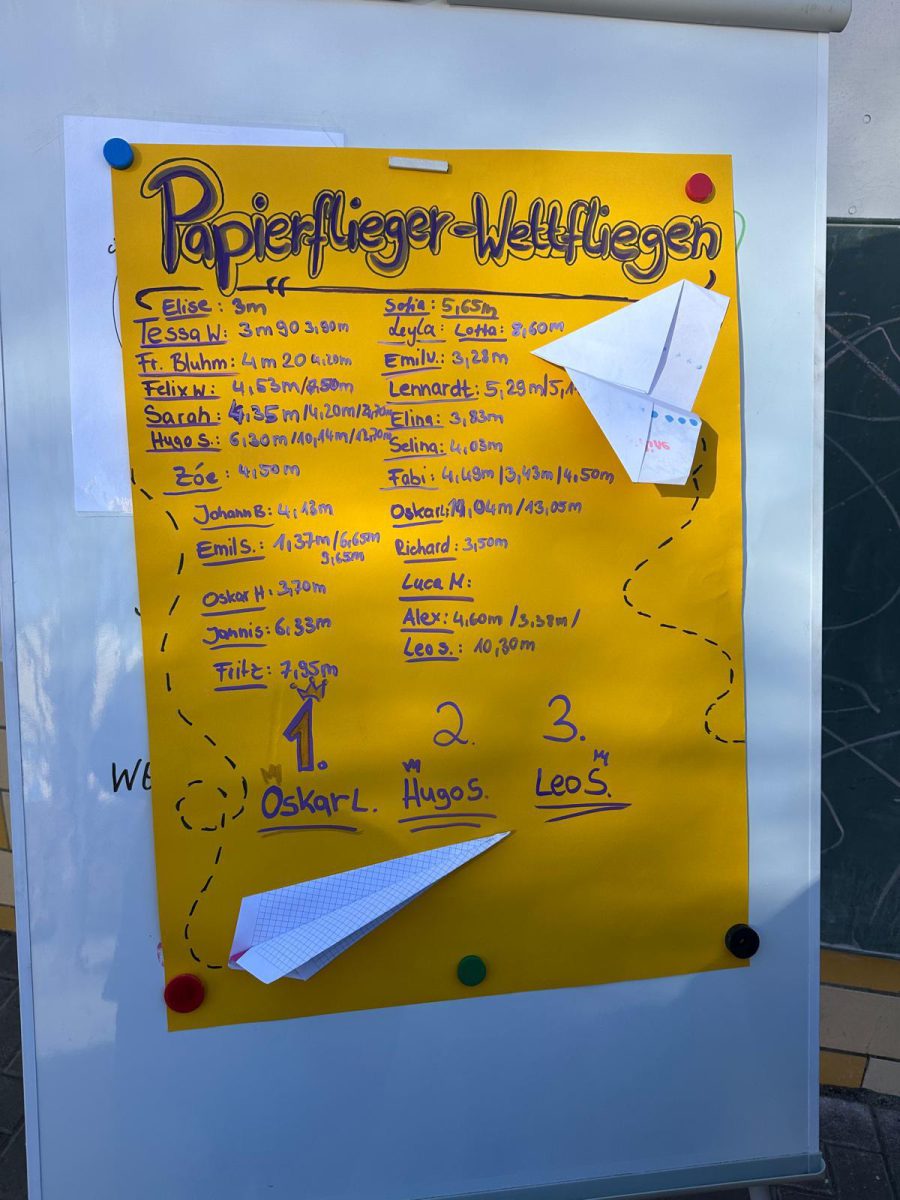 Papierflieger-Wettfliegen
Elise: 3m
Tessa W: 3m90 3,90m
Fr. Bluhm: 4m20 4,20m
Felix W.: 4,53m/
Sarah: 4,35m/4,20m/
Hugo S.: 6,30m/10,14m/12,70m
Zóe: 4,50m
Johann B: 4,13m
Emil S.: 1,37m/6,65m
9,65m
Oskar H: 3,70m
Jannis: 6,33m
Fritz: 7,95m
Sofia: 5,65m
Leyla: Lotta: 8,60m
Emil V.: 3,28m
Lennardt: 5,29m/5,1
Elina: 3,83m
Selina: 4,03m
Fabi: 4,49m/3,43m/4,50m
Oskar L: /13,05m
Richard: 3,50m
Luca M:
Alex: 4,60m/3,38m/
Leo S.: 10,30m
1. 2. 3.
Oskar L. Hugo S. Leo S.
WE